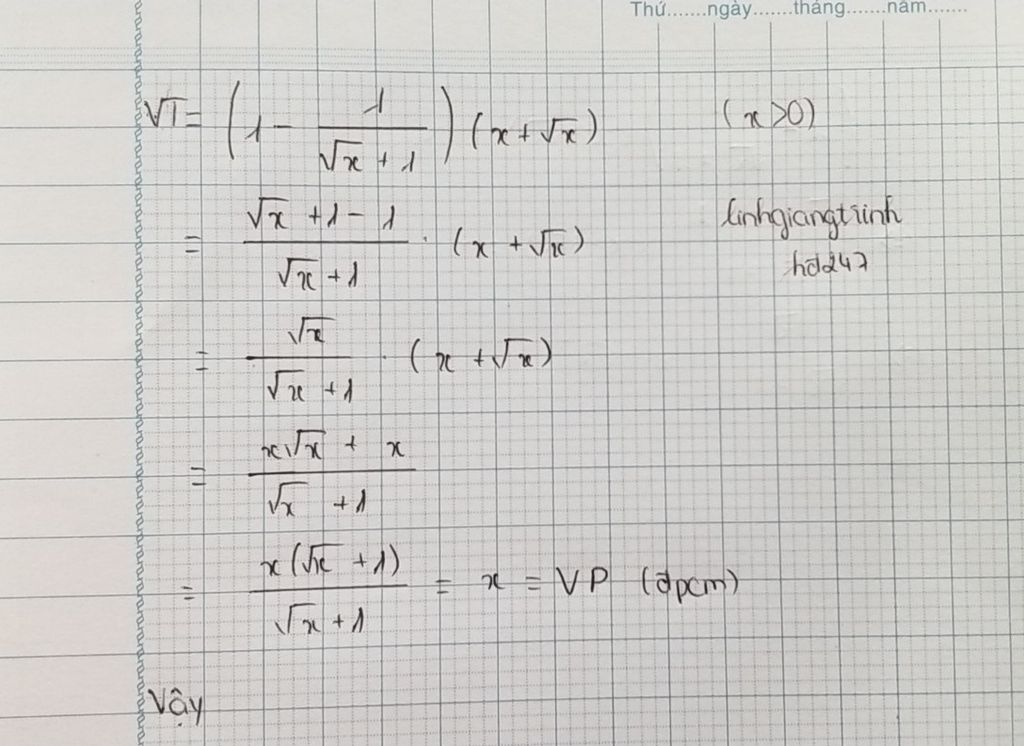 Thứ.......ngày.......tháng.......năm.......
VT = (1 - 1/(√x + 1)) (x + √x) (x > 0)
= (√x + 1 - 1)/(√x + 1) . (x + √x) linhgiangtrinh
hd247
= √x/(√x + 1) . (x + √x)
= (x√x + x)/(√x + 1)
= x(√x + 1)/(√x + 1) = x = VP (đpcm)
Vậy